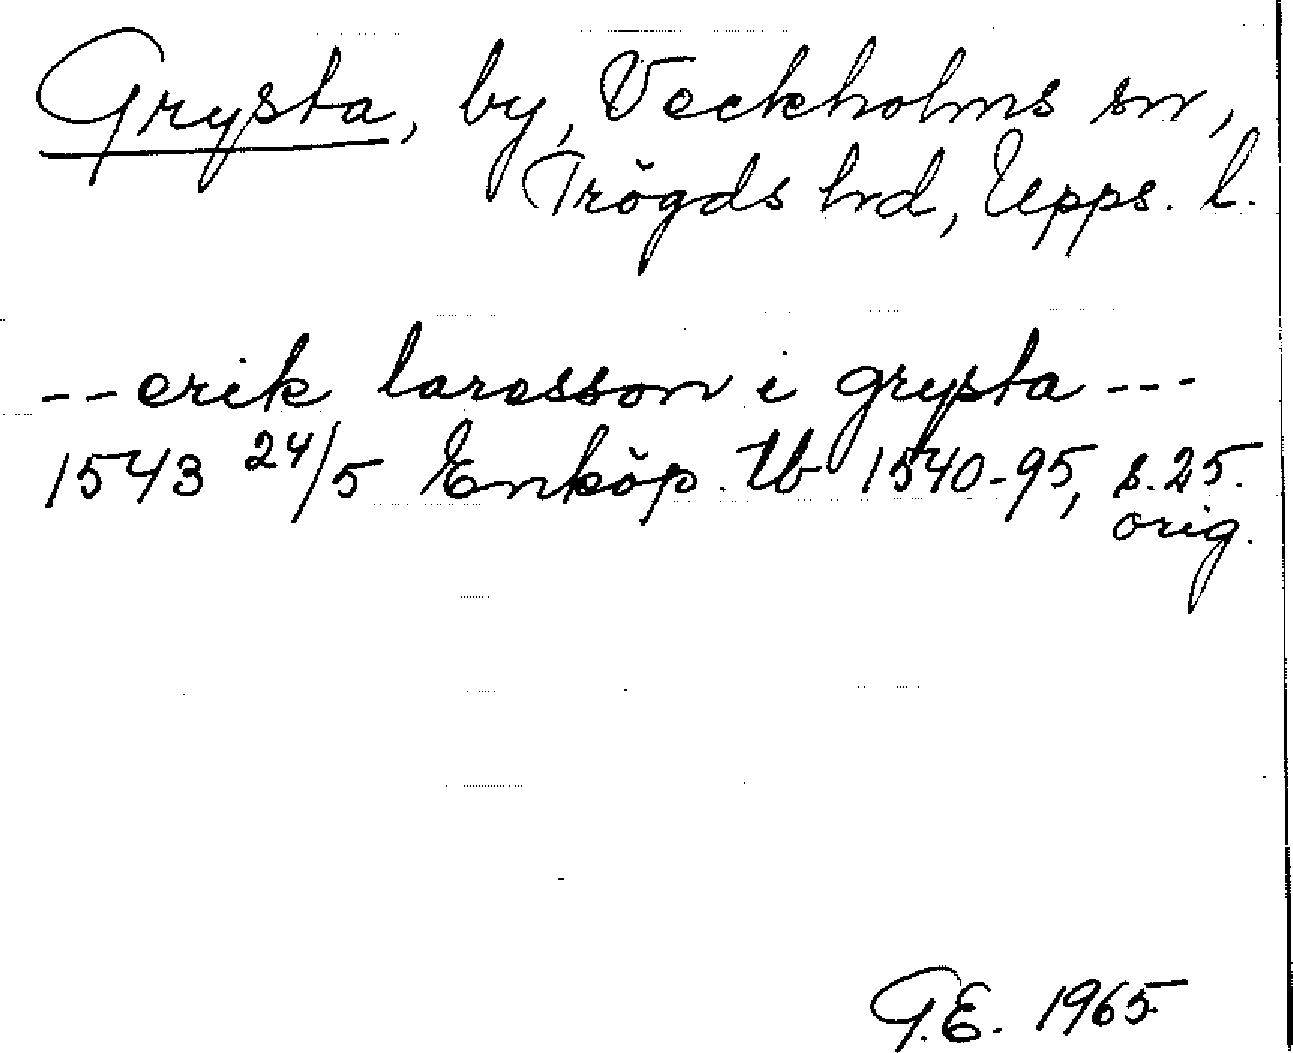 Grysta, by, Veckholms sn,
Trögds hrd, Upps. l.
-- erik larsson i grysta ---
1543 24/5 Enköp. tb 1540-95, s. 25.
orig.
G.E. 1965